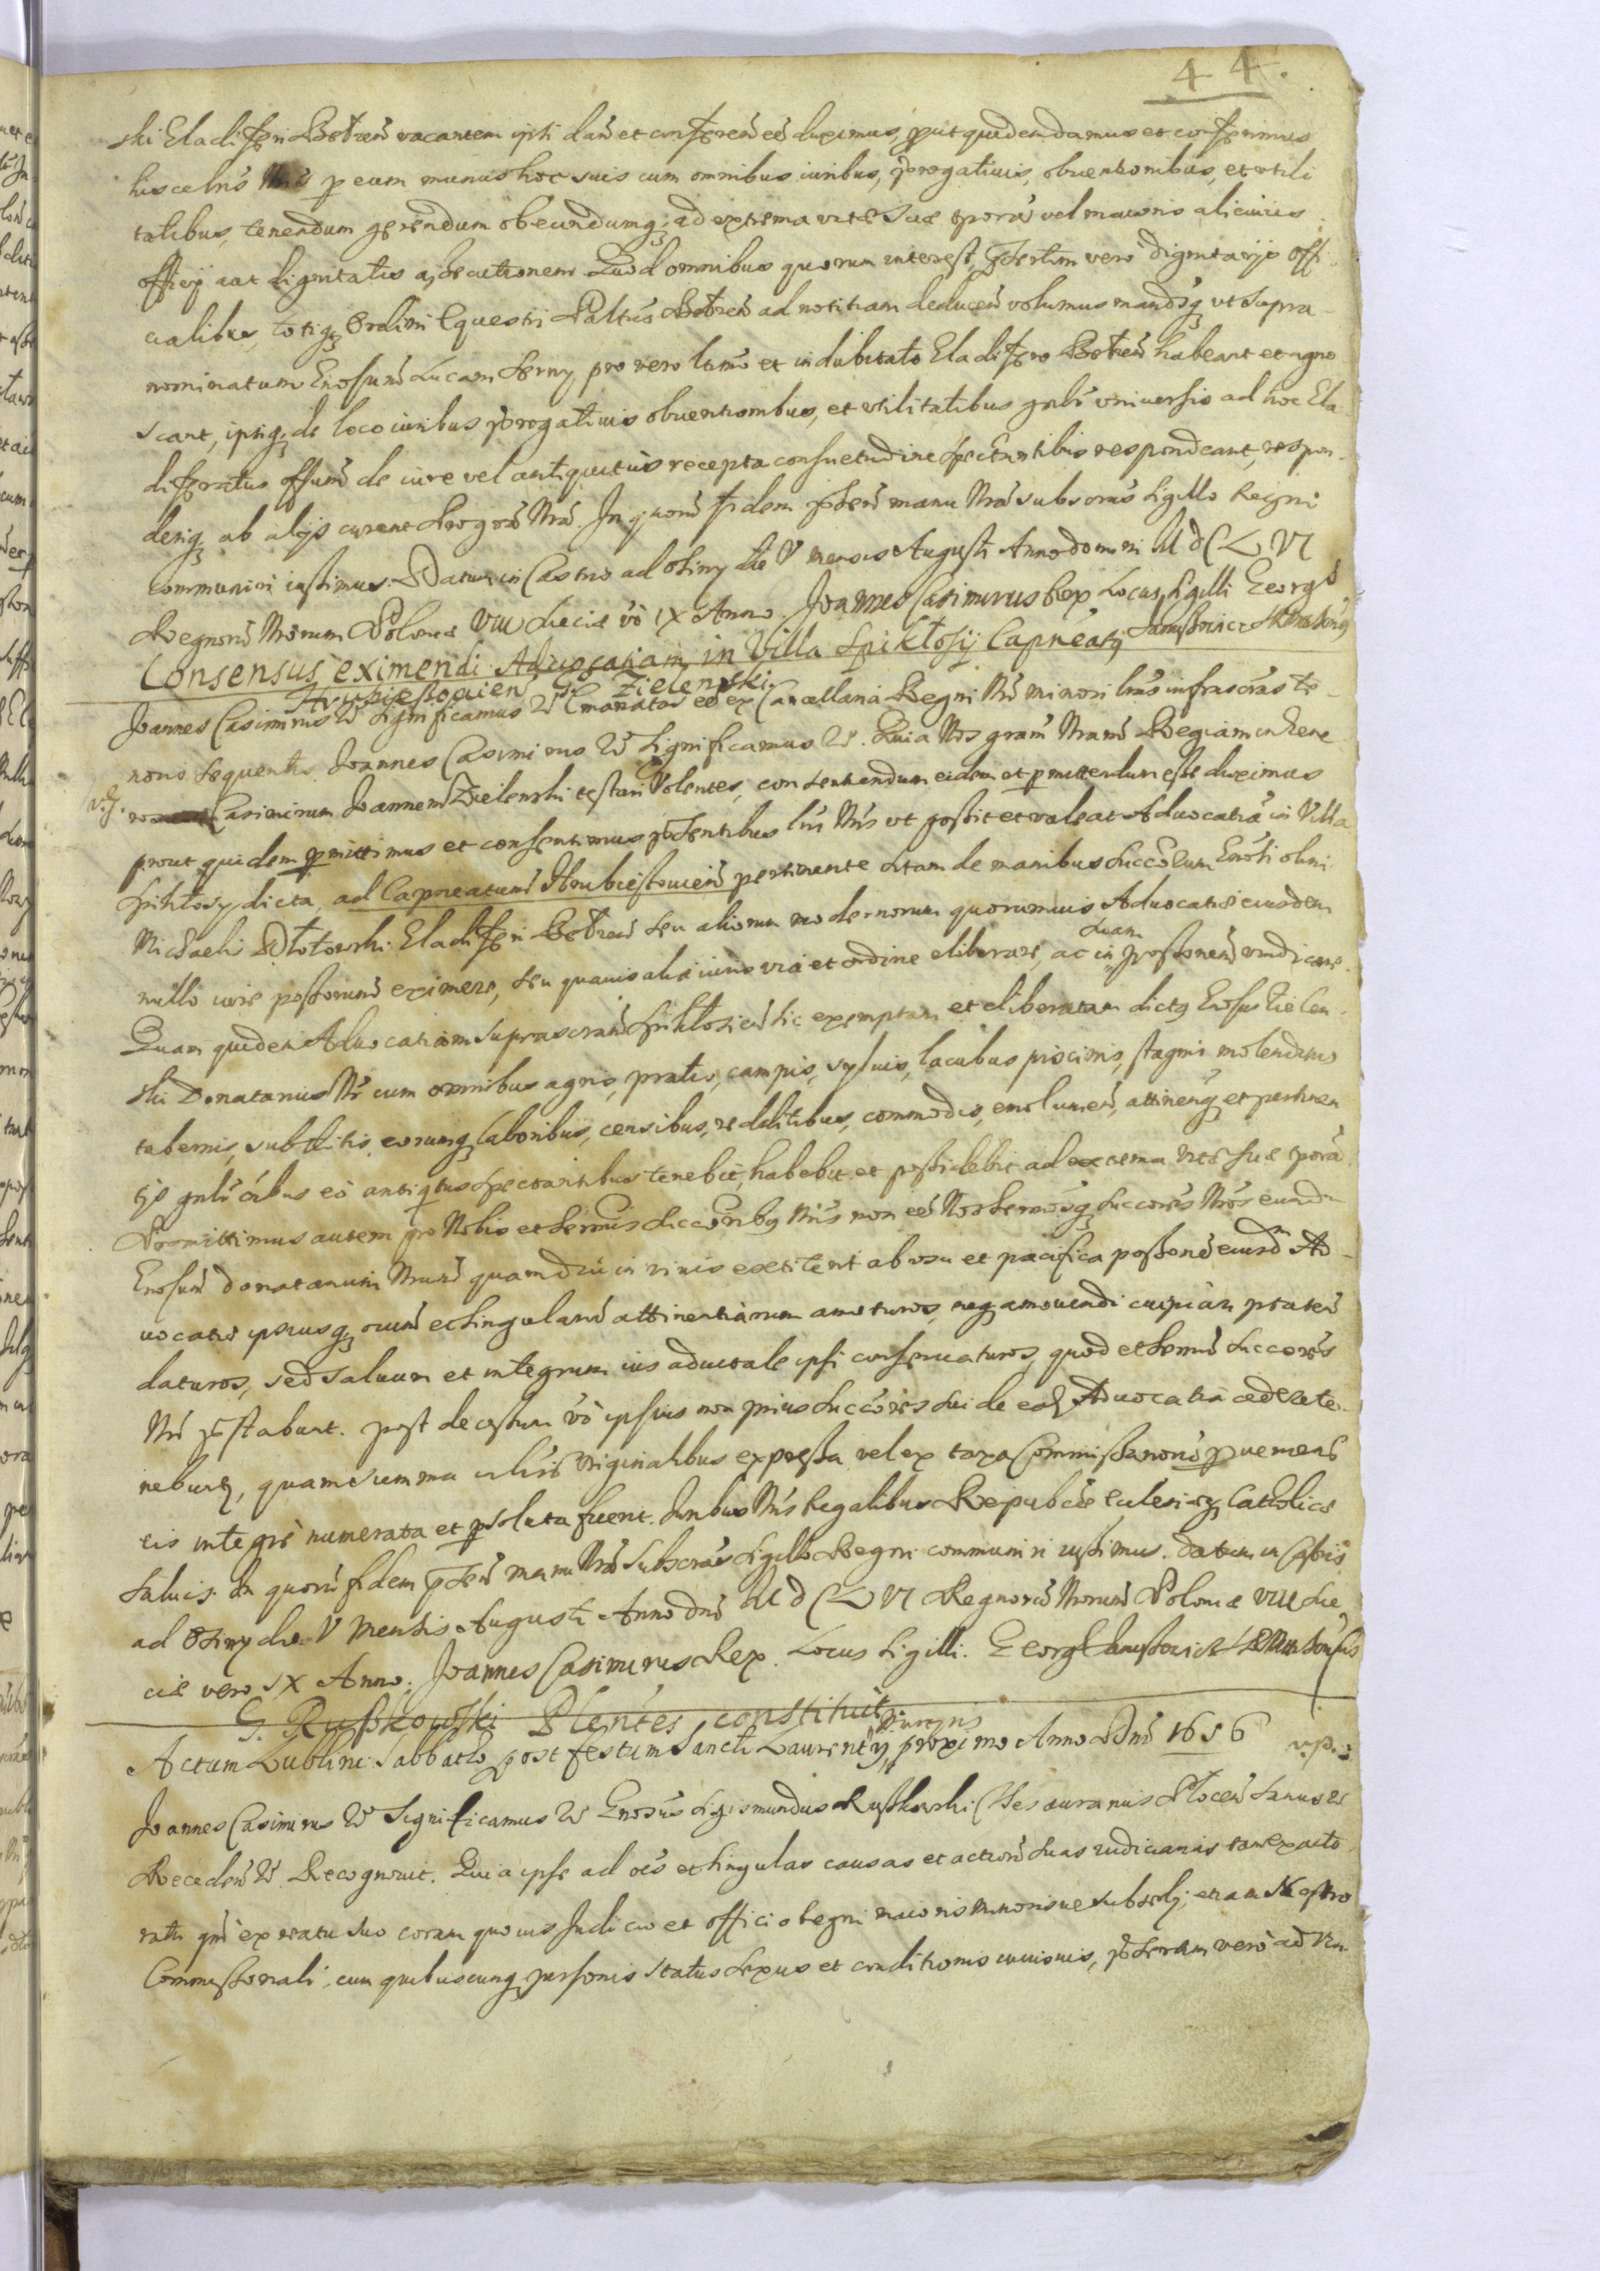 44.
ski Eladifferi Belzeñ vacantem ipsi dañ et confereñ eē duximus, prout quidem damus et conferimus
hisce lrīs Nrīs p eum munus hoc suis cum omnibus iuribus, prærogatiuis, obuentionibus, et vtili
tatibus, tenendum gerendum obeundumq; ad extrema vitæ suæ tporā vel maioris alicuius
officij aut dignitatis assecutionem Quod omnibus quorum interest, præsertim vero dignitarijs offi
cialibus, totiq Ordini Equestri Paltūs Belzeñ ad notitiam deduceñ volumus mandsq vt supra
nominatum Gnosum Lucam Serny pro vero ltimo et indubitato Eladifero Belzeñ habeant et agno
scant, ipsiq; de loco iuribus prærogatiuis obuentionibus, et vtilitatibus gnlr vniuersis ad hoc Ela
diferatus offium de iure vel antiquitùs recepta consuetudine spectantibus respondeant, respon
deriq ab alijs curent pro grā Nrā. In quorū fidem præseñ manu Nrā subscrās Sigillo Regni
communiri iussimus. Datum in Castris ad Osiny die V mensis Augusti Anno domini MDCLVI
Regnorū Nrorum Poloniæ VIII Sueciæ vō IX Anno. Joannes Casimirus Rex Locus Sigilli Georg
Consensus eximendi Aduocatiam in Villa Spikłosy Capneats
Hrubieszouien G. Zielenski
Joannes Casimirus Significamus Emanatas eē ex Cancellaria Regni Nrī minori lras infrascrās te
noris sequentis. Joannes Casimirus Significamus. Quia Nos gram Nram Regiam in Gene
Casimirum Joannem Zielenski testari Volentes, consentiendum eidem et pmittendum esse duximus
prout quidem pmittimus et consentimus præsentibus lrīs Nrīs vt possit et valeat Aduocatiā in Villa
Spikłosy dicta, ad Capneatum Hrubieszouieñ pertinente ntam de manibus Succorum Gnosi olim
Michaelis Dłotowski Eladifferi Belzeñ seu aliorum modernorum quorumuis Aduocatiæ eiusdem
nullo iure possorum eximere, seu quauis aliā iuris viā et ordine eliberare, ac in suam possonem vindicare.
Quam quidem Aduocatiam suprascram Spikłosieñ sic exemptam et eliberatam dictq Gnosus Zielen
ski Donatarius Nr cum omnibus agris, pratis, campis, syluis, lacubus piscinis, stagnis molendinis
tabernis, subditis, eorumq laboribus, censibus, redditibus, commodis, emolumeñ, attineng et pertinen
tijs gnlr oībus eò antiqtus spectantibus tenebit, habebit et possidebit ad extrema vitæ suæ tporā
Promittimus autem pro Nobis et Sermis Succorībq Nrīs non eē Nos Sermosq Succorēs Nrōs eundm
Gnosum donatarium Nrum quamdiu in viuis extiterit ab vsu et pacifica possonē eiusdm Ad
uocatiæ ipsiusq oium et singularū attinentiarum amoturos, neq amouendi cuipiam ptateñ
daturos, sed saluum et integrum ius aduitale ipsi conseruaturos, quod et Sermi Succorēs
Nrī præstabunt. post decessum vō ipsius non prius Succores sui de ead Aduocatia cedere te
nebuntr, quam summa in lrīs originalibus expressa vel ex taxa Commissariorū pueniens
eis integre numerata et psoluta fuerit. Iuribus Nrīs Regalibus Reipubcæ Ecclesiæq Catholicæ
saluis. In quorū fidem præseñ manu Nrā Subscrās Sigillo Regni communiri iussimus. Datum in Castris
ad Osiny die V Mensis Augusti Anno dni MDCLVI Regnorū Nrorum Poloniæ VIII Sue
ciæ vero IX Anno. Joannes Casimirus Rex. Locus Sigilli. Georg
G. Ruszkowski Plentes constituit
Actum Lublini Sabbatho post festum Sancti Laurentij Martyris proximo Anno Dni 1656
Joannes Casimirus Significamus Gnosus Sigismundus Ruszkowski Thesaurarius Ploceñ sanus
Recedeñ. Recognouit. Quia ipse ad oēs et singulas causas et actionē suas iudiciarias tam ex acto
ratu qm ex reatu suo coram quouis Iudicio et officio Regni maioris minorisue subsely, etiam
Commissoriali, cum quibuscunq personis status sexus et conditionis cuiusuis, præsertim vero ad